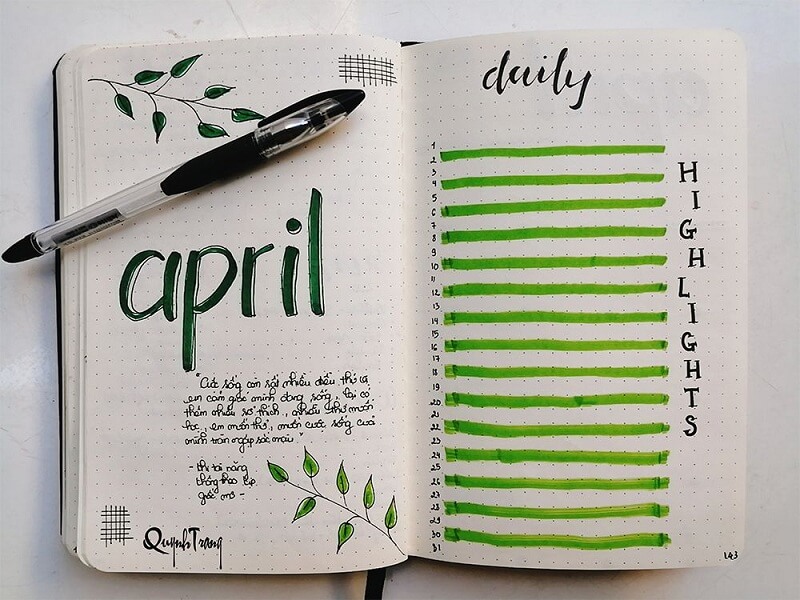 april
"Cuộc sống còn rất nhiều điều thú vị,
em cảm giác mình đang sống, lại có
thêm nhiều sở thích, nhiều thứ muốn
học, em muốn thử, muốn cuộc sống của
mình tràn ngập sắc màu"
- Khi tài năng
không theo kịp
giấc mơ -
QuỳnhTrang
daily
1
2
3
4
5
6
7
8
9
10
11
12
13
14
15
16
17
18
19
20
21
22
23
24
25
26
27
28
29
30
31
HIGHLIGHTS
143